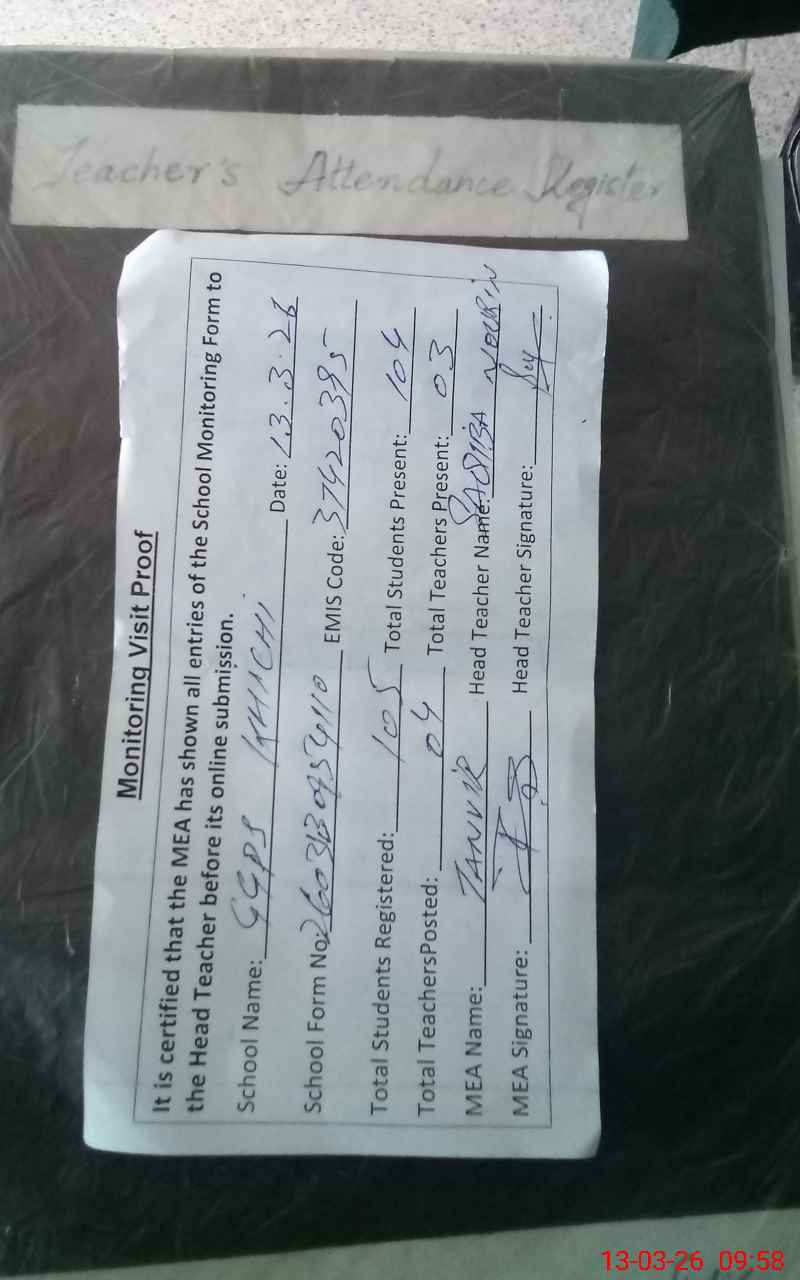 Teacher's Attendance Register
Monitoring Visit Proof
It is certified that the MEA has shown all entries of the School Monitoring Form to
the Head Teacher before its online submission.
School Name: GGPS KHICHI Date: 13.3.26
School Form No: EMIS Code: 37420395
Total Students Registered: 105 Total Students Present: 104
Total TeachersPosted: 04 Total Teachers Present: 03
MEA Name: TANVIR Head Teacher Name: NOURIN
MEA Signature: Head Teacher Signature:
13-03-26 09:58